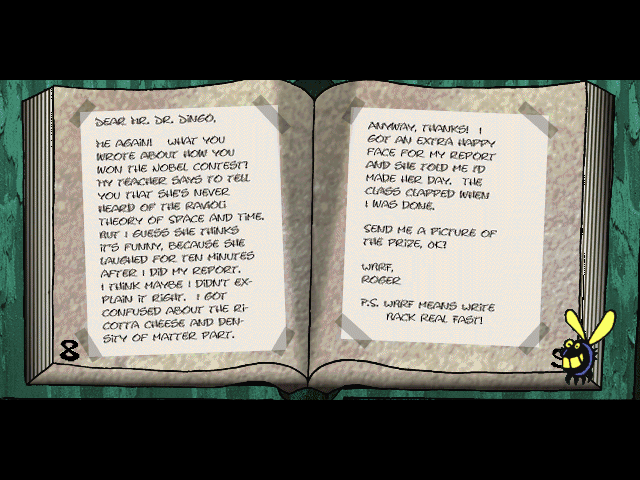 DEAR MR. DR. DINGO,
ME AGAIN! WHAT YOU
WROTE ABOUT HOW YOU
WON THE NOBEL CONTEST!
MY TEACHER SAYS TO TELL
YOU THAT SHE'S NEVER
HEARD OF THE RAVIOLI
THEORY OF SPACE AND TIME.
BUT I GUESS SHE THINKS
IT'S FUNNY, BECAUSE SHE
LAUGHED FOR TEN MINUTES
AFTER I DID MY REPORT.
I THINK MAYBE I DIDN'T EX-
PLAIN IT RIGHT. I GOT
CONFUSED ABOUT THE RI-
COTTA CHEESE AND DEN-
SITY OF MATTER PART.
8
ANYWAY, THANKS! I
GOT AN EXTRA HAPPY
FACE FOR MY REPORT
AND SHE TOLD ME I'D
MADE HER DAY. THE
CLASS CLAPPED WHEN
I WAS DONE.
SEND ME A PICTURE OF
THE PRIZE, OK?
WBRF,
ROGER
P.S. WBRF MEANS WRITE
BACK REAL FAST!